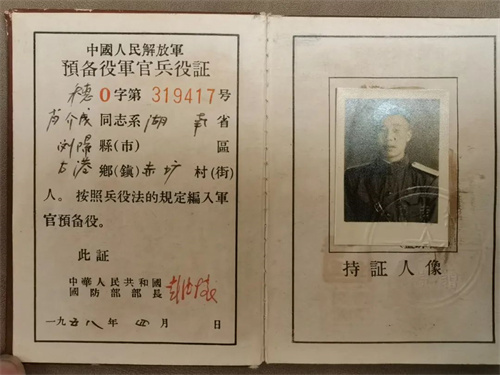 中國人民解放軍
預备役軍官兵役証
穗0字第 319417 号
苗介成同志系湖南省
浏陽縣(市) 區
古港鄉(鎮)赤坊村(街)
人。按照兵役法的規定編入軍
官預备役。
此証
中華人民共和國
國防部部長 彭德怀
一九五八年四月 日
持証人像